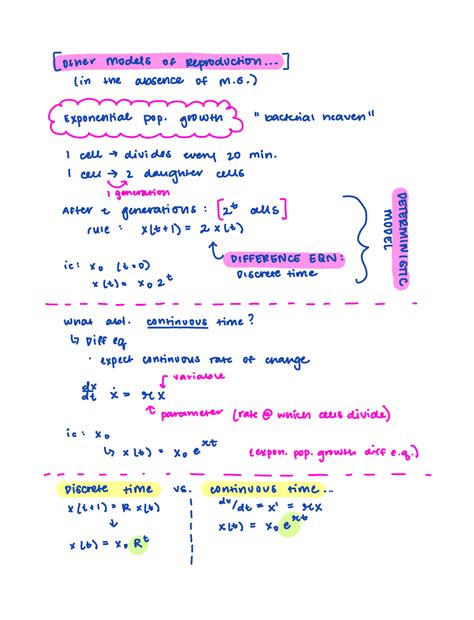 [other models of reproduction...]
(in the absence of m.s.)
Exponential pop. growth "bacterial heaven"
1 cell → divides every 20 min.
1 cell → 2 daughter cells
1 generation
After t generations: [2^t cells]
rule: x(t+1) = 2x(t)
DIFFERENCE EQN:
Discrete time
DETERMINISTIC MODEL
ic: x₀ (t=0)
x(t) = x₀2^t
what abt. continuous time?
↳ Diff eq
· expect continuous rate of change
variable
dx/dt ẋ = rx
parameter (rate @ which cells divide)
ic: x₀
↳ x(t) = x₀e^rt (expon. pop. growth diff e.q.)
Discrete time vs. continuous time...
x(t+1) = R x(t) dx/dt = x' = rx
↓ x(t) = x₀e^rt
x(t) = x₀R^t